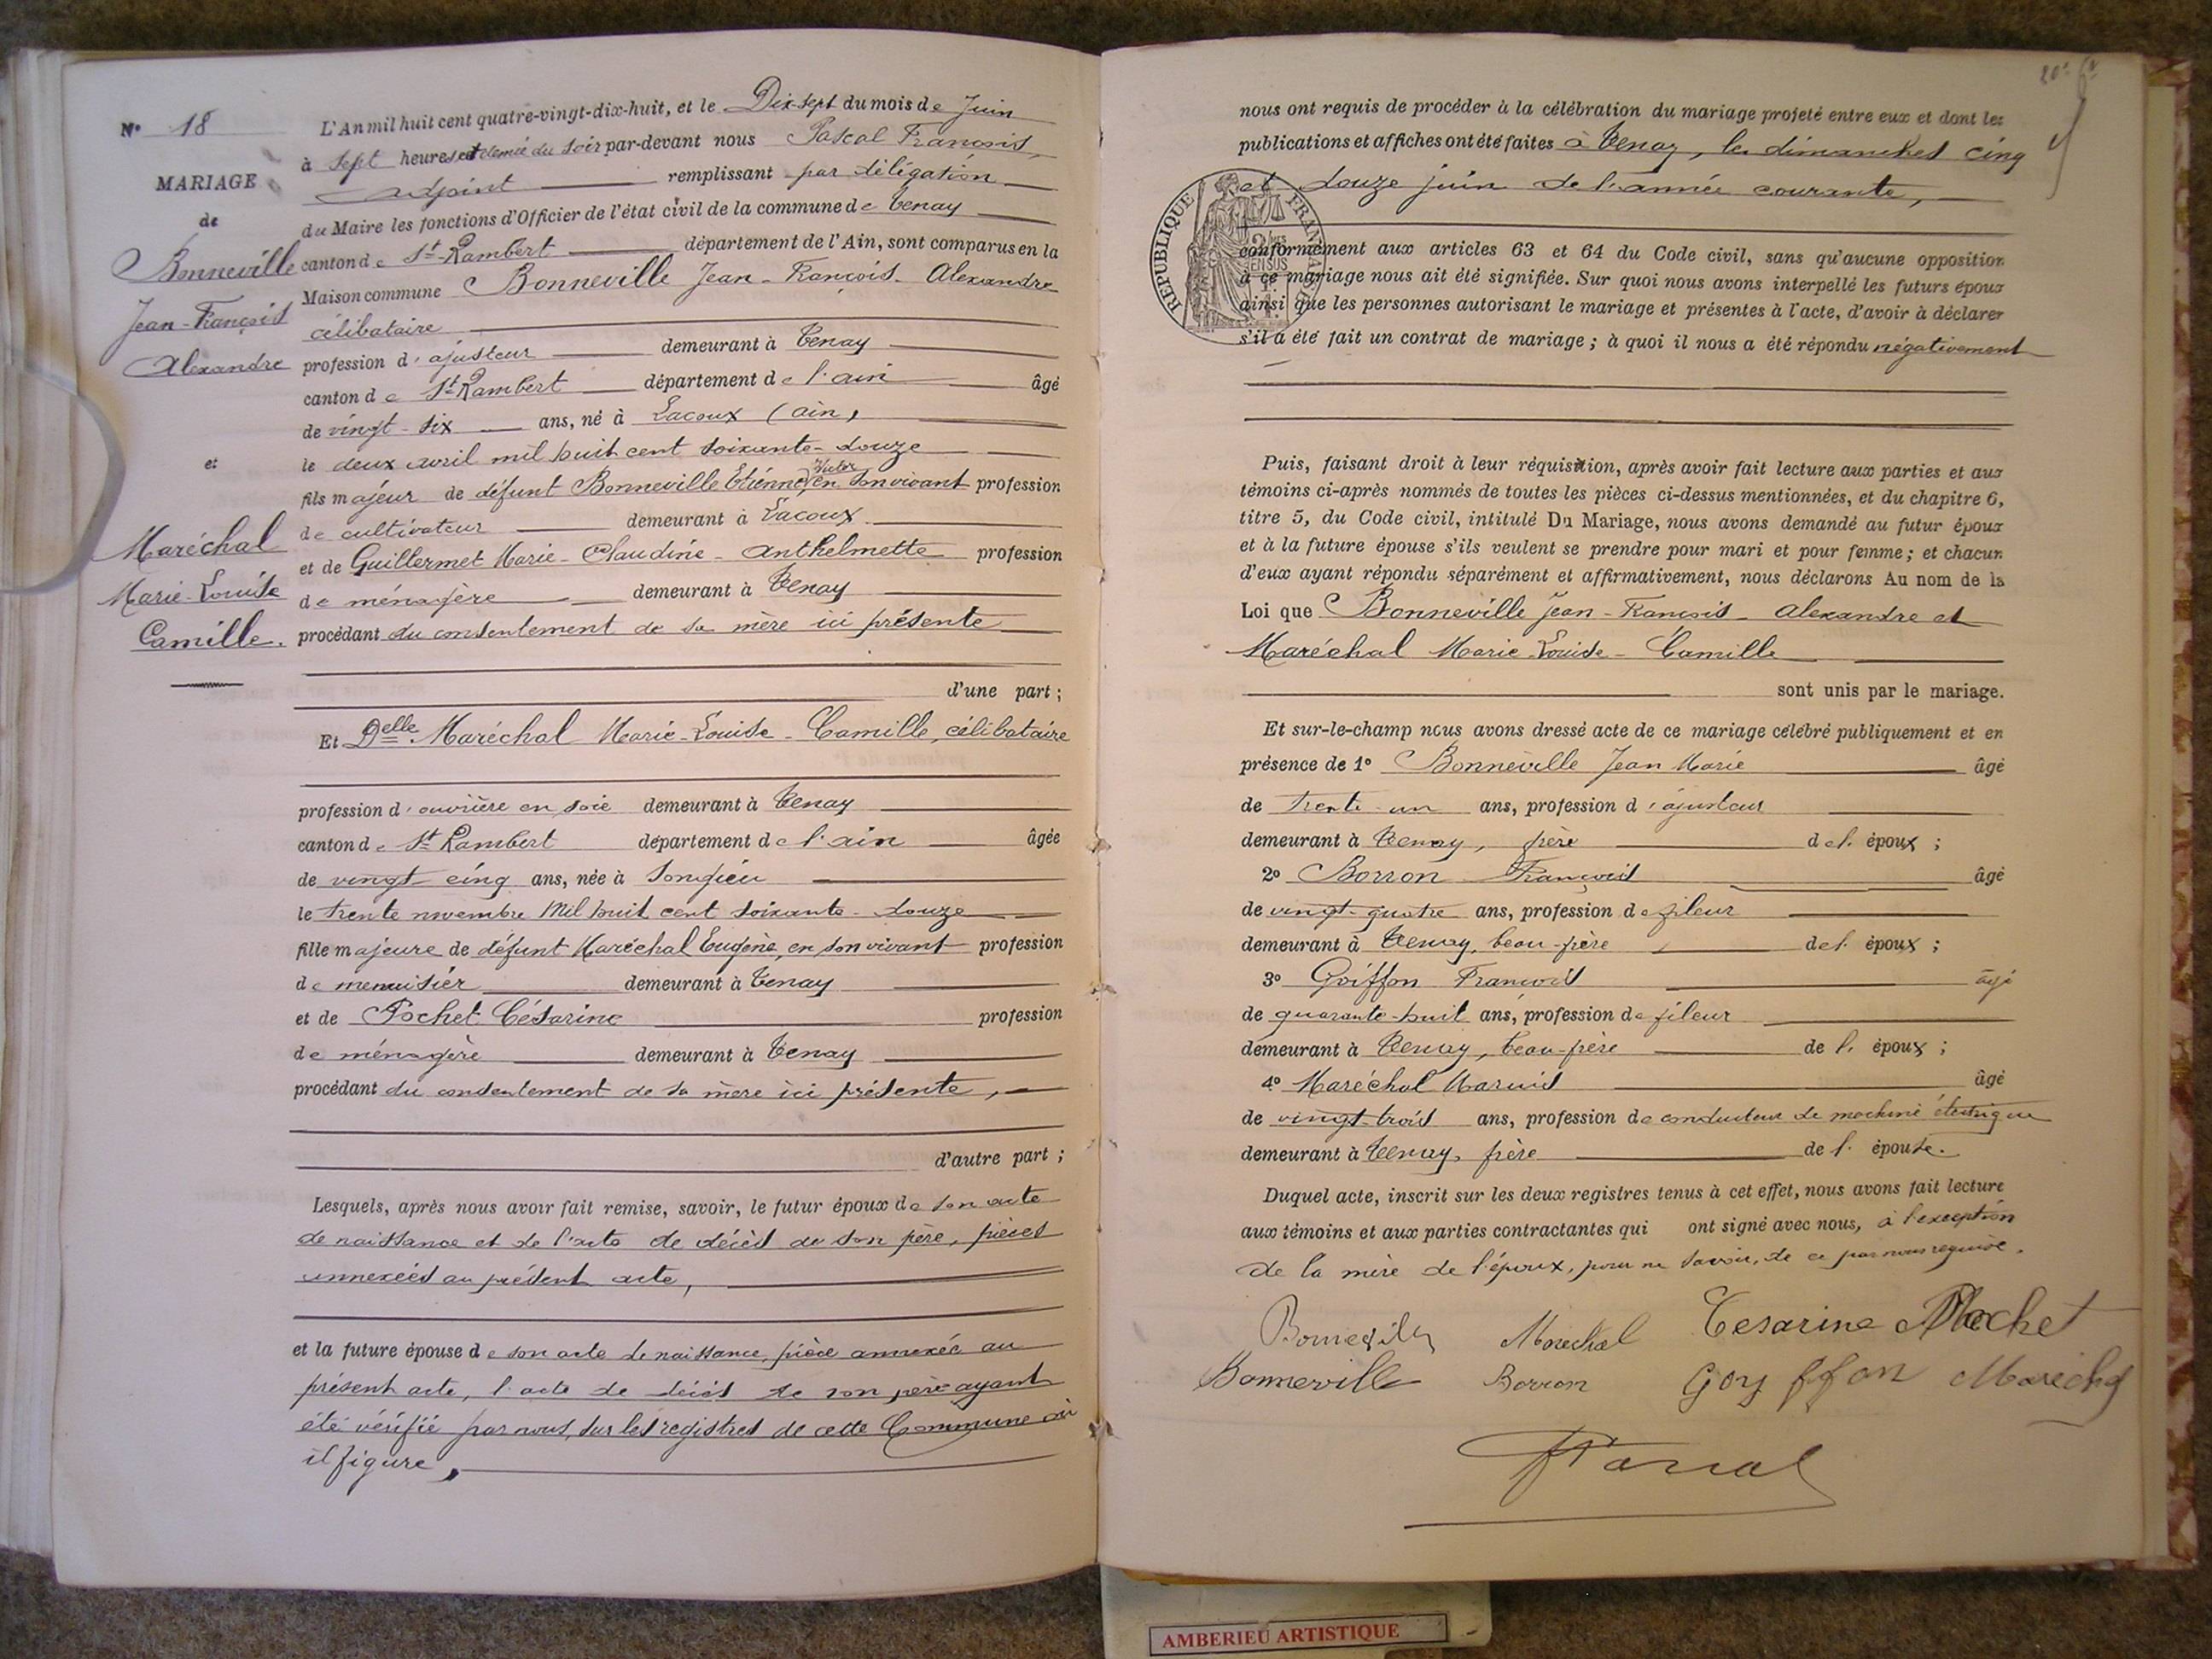 N° 18
MARIAGE
de
Bonneville
Jean-François
Alexandre
et
Maréchal
Marie-Louise
Camille.
L'An mil huit cent quatre-vingt-dix-huit, et le Dix-sept du mois de Juin
à sept heures et demie du soir par-devant nous Pascal François,
adjoint remplissant par délégation
du Maire les fonctions d'Officier de l'état civil de la commune de Tenay
canton de St-Rambert département de l'Ain, sont comparus en la
Maison commune Bonneville Jean-François-Alexandre
célibataire
profession d'ajusteur demeurant à Tenay
canton de St Rambert département de l'ain âgé
de vingt-six ans, né à Lacoux (ain)
le deux avril mil huit cent soixante-douze
fils majeur de défunt Bonneville Etienne, Victor en son vivant profession
de cultivateur demeurant à Lacoux
et de Guillermet Marie-Claudine-Anthelmette profession
de ménagère demeurant à Tenay
procédant du consentement de sa mère ici présente
d'une part ;
Et Delle Maréchal Marie-Louise-Camille, célibataire
profession d'ouvrière en soie demeurant à Tenay
canton de St Rambert département de l'ain âgée
de vingt-cinq ans, née à Songieu
le trente novembre mil huit cent soixante-douze
fille majeure de défunt Maréchal Eugène, en son vivant profession
de menuisier demeurant à Tenay
et de Pochet Césarine profession
de ménagère demeurant à Tenay
procédant du consentement de sa mère ici présente,
d'autre part ;
Lesquels, après nous avoir fait remise, savoir, le futur époux de son acte
de naissance et de l'acte de décès de son père, pièces
annexées au présent acte,
et la future épouse de son acte de naissance, pièce annexée au
présent acte, l'acte de décès de son père ayant
été vérifié par nous, sur les registres de cette Commune où
il figure,
nous ont requis de procéder à la célébration du mariage projeté entre eux et dont les
publications et affiches ont été faites à Tenay, les dimanches cinq
et douze juin de l'année courante,
RÉPUBLIQUE FRANÇAISE
conformément aux articles 63 et 64 du Code civil, sans qu'aucune opposition
à ce mariage nous ait été signifiée. Sur quoi nous avons interpellé les futurs époux
ainsi que les personnes autorisant le mariage et présentes à l'acte, d'avoir à déclarer
s'il a été fait un contrat de mariage ; à quoi il nous a été répondu négativement
Puis, faisant droit à leur réquisition, après avoir fait lecture aux parties et aux
témoins ci-après nommés de toutes les pièces ci-dessus mentionnées, et du chapitre 6,
titre 5, du Code civil, intitulé Du Mariage, nous avons demandé au futur époux
et à la future épouse s'ils veulent se prendre pour mari et pour femme ; et chacun
d'eux ayant répondu séparément et affirmativement, nous déclarons Au nom de la
Loi que Bonneville Jean-François-Alexandre et
Maréchal Marie-Louise-Camille
sont unis par le mariage.
Et sur-le-champ nous avons dressé acte de ce mariage célébré publiquement et en
présence de 1° Bonneville Jean Marie âgé
de trente-un ans, profession d'ajusteur
demeurant à Tenay, frère de l'époux ;
2° Borron François âgé
de vingt-quatre ans, profession de fileur
demeurant à Tenay, beau-frère de l'époux ;
3° Goiffon François âgé
de quarante-huit ans, profession de fileur
demeurant à Tenay, beau-frère de l'époux ;
4° Maréchal Marius âgé
de vingt-trois ans, profession de conducteur de machine électrique
demeurant à Tenay, frère de l'épouse.
Duquel acte, inscrit sur les deux registres tenus à cet effet, nous avons fait lecture
aux témoins et aux parties contractantes qui ont signé avec nous, à l'exception
de la mère de l'époux, pour ne savoir, de ce par nous requise.
Bonneville Maréchal Cesarine Pochet
Bonneville Borron Goyffon Maréchal
Pascal
AMBERIEU ARTISTIQUE